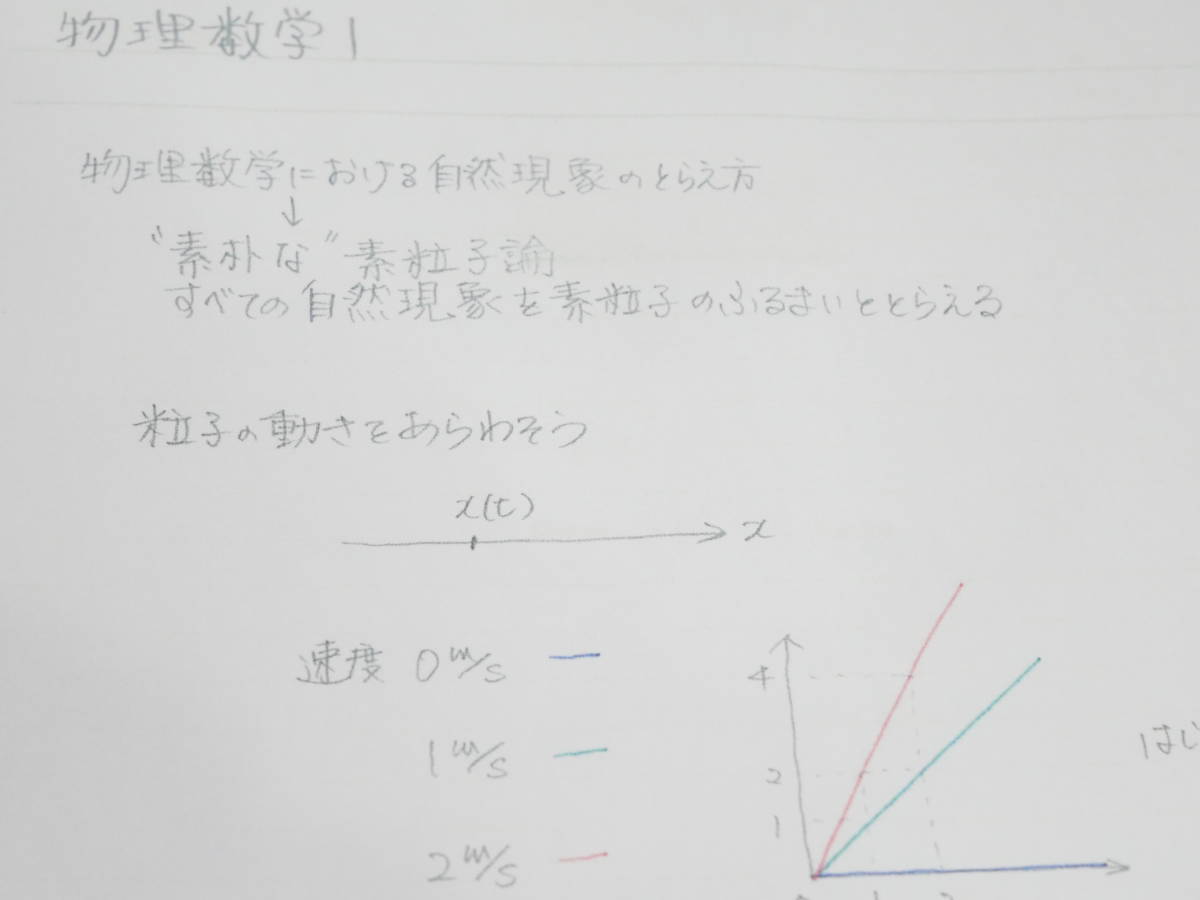 物理数学1
物理数学における自然現象のとらえ方
↓
“素朴な”素粒子論
すべての自然現象を素粒子のふるまいととらえる
粒子の動きをあらわそう
x(t)
x
速度 0 m/s
1 m/s
2 m/s
4
2
1
はじ
1